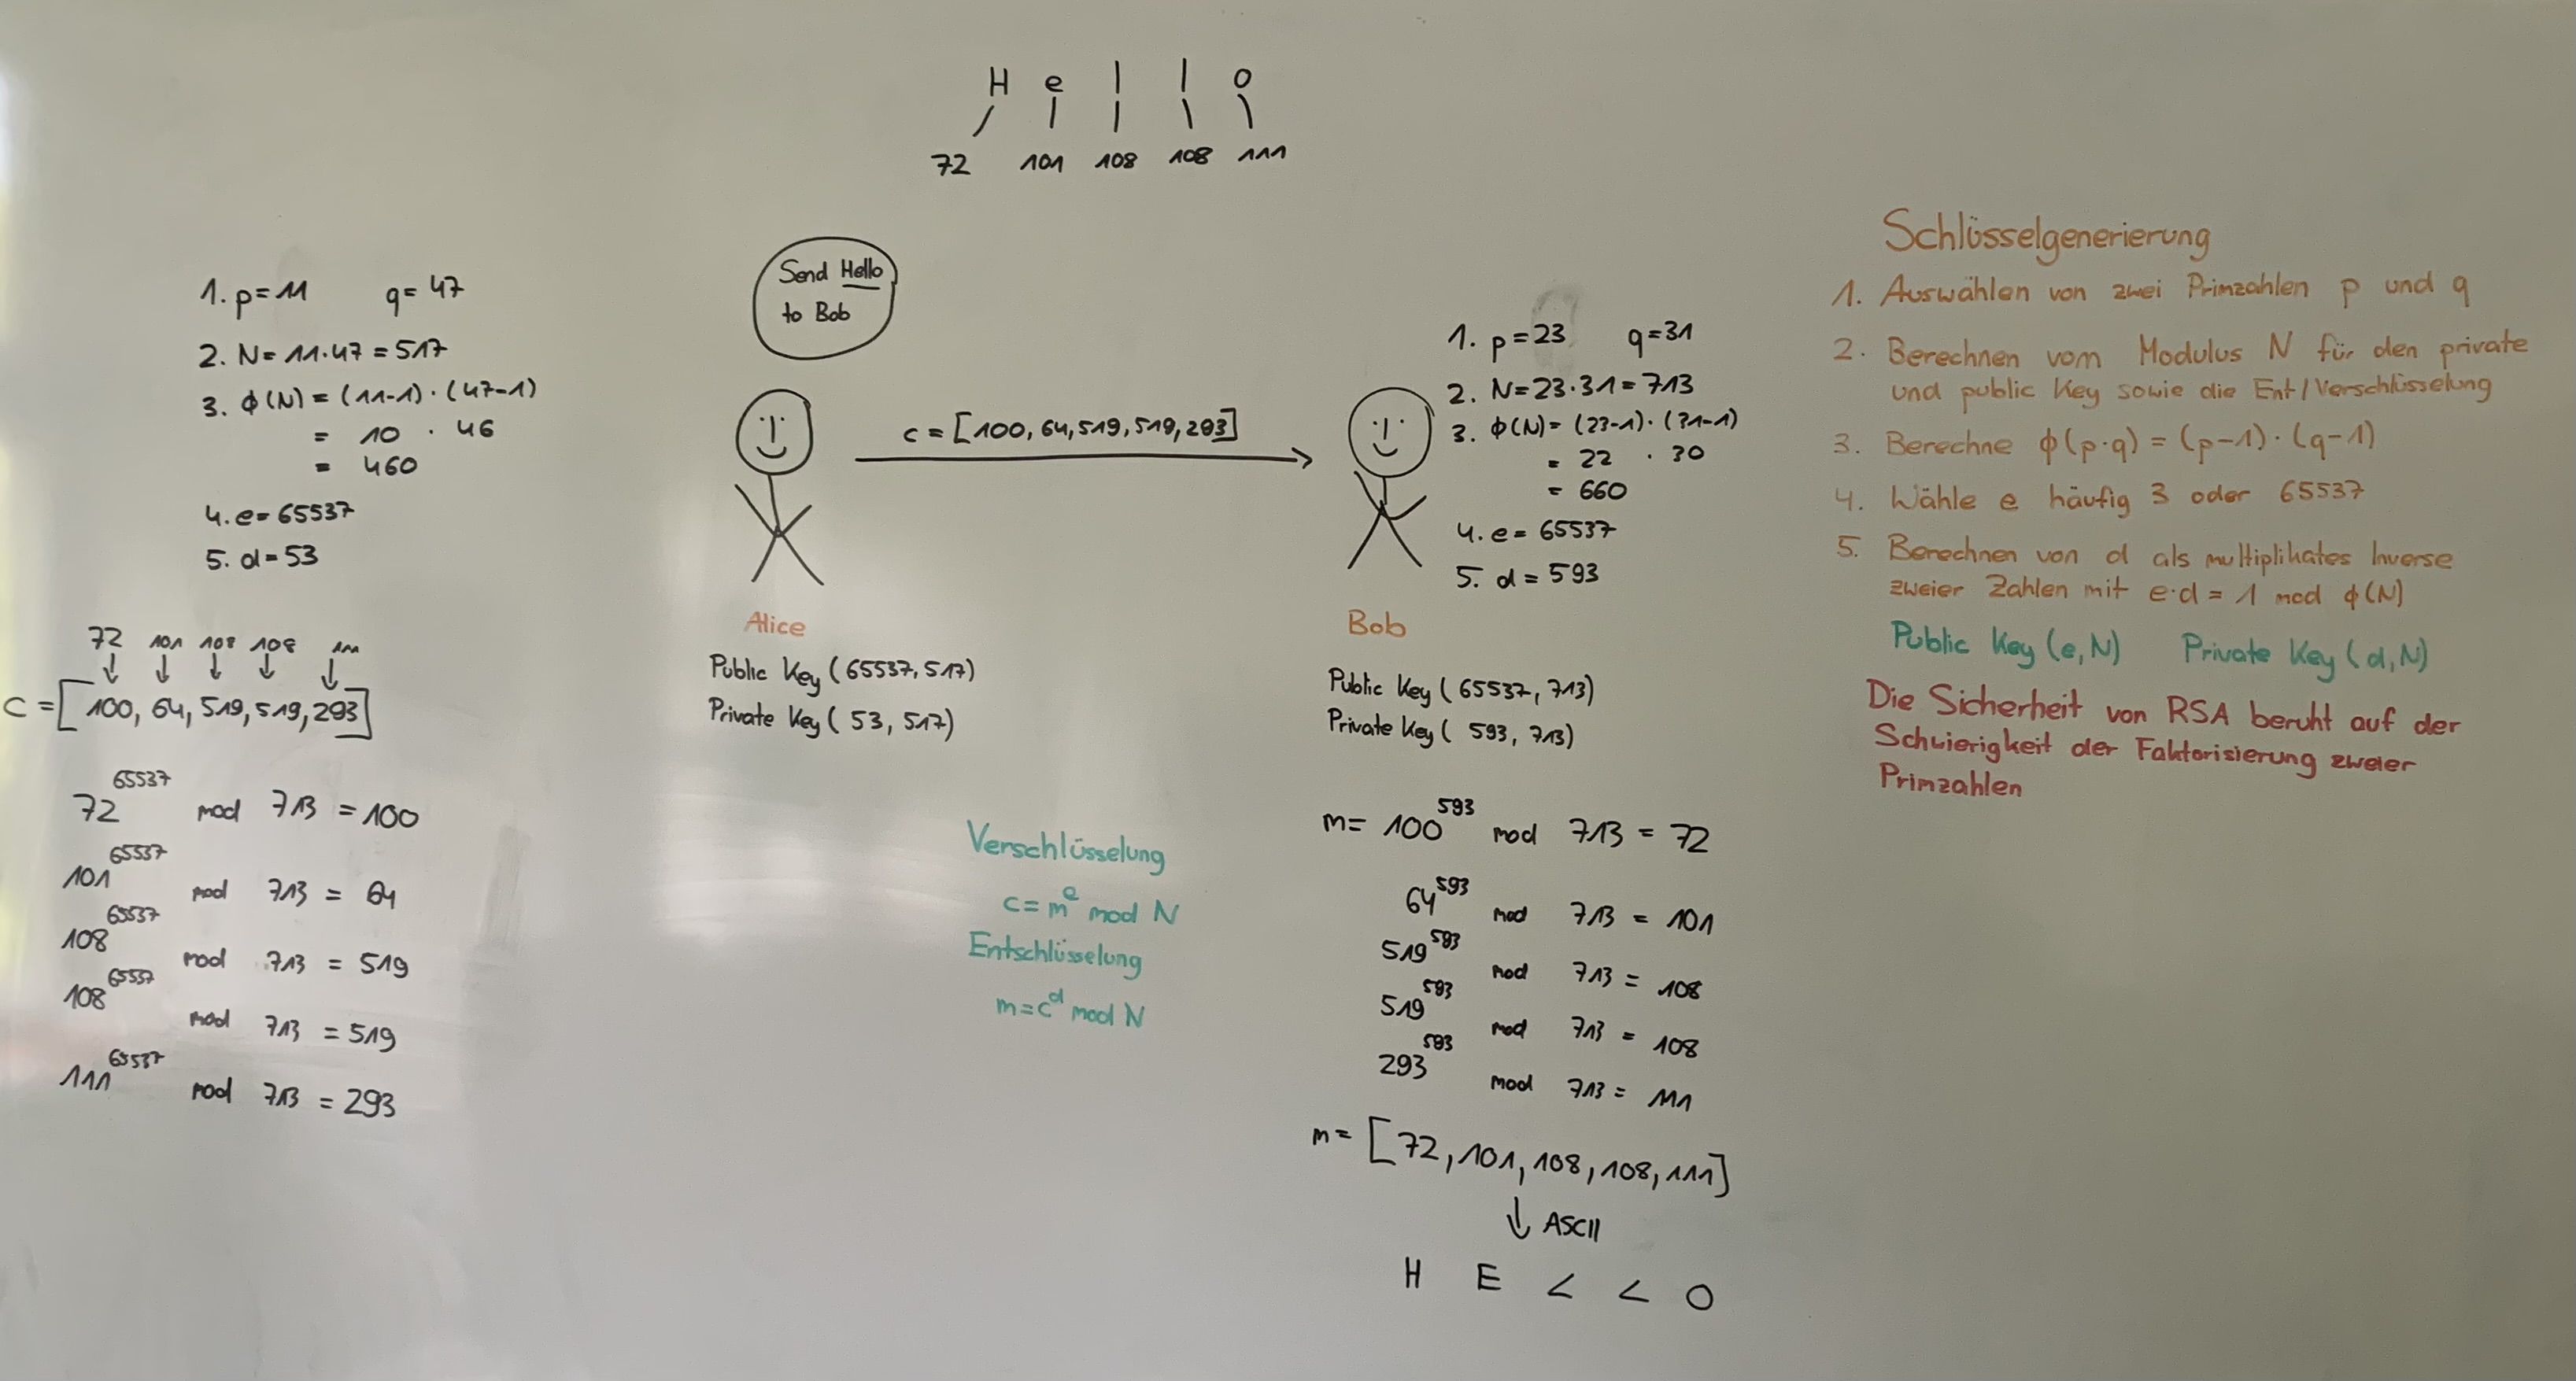 H e l l o
72 101 108 108 111
1. p=11 q=47
2. N=11·47=517
3. ϕ(N)=(11-1)·(47-1)
= 10 · 46
= 460
4. e=65537
5. d=53
72 101 108 108 111
c=[100, 64, 519, 519, 293]
72^65537 mod 713 = 100
101^65537 mod 713 = 64
108^65537 mod 713 = 519
108^65537 mod 713 = 519
111^65537 mod 713 = 293
Send Hello
to Bob
c=[100, 64, 519, 519, 293]
Alice
Public Key (65537, 517)
Private Key (53, 517)
Verschlüsselung
c=m^e mod N
Entschlüsselung
m=c^d mod N
1. p=23 q=31
2. N=23·31=713
3. ϕ(N)=(23-1)·(31-1)
= 22 · 30
= 660
4. e=65537
5. d=593
Bob
Public Key (65537, 713)
Private Key (593, 713)
m= 100^593 mod 713 = 72
64^593 mod 713 = 101
519^593 mod 713 = 108
519^593 mod 713 = 108
293^593 mod 713 = 111
m=[72, 101, 108, 108, 111]
↓ ASCII
H E L L O
Schlüsselgenerierung
1. Auswählen von zwei Primzahlen p und q
2. Berechnen vom Modulus N für den private
und public Key sowie die Ent/Verschlüsselung
3. Berechne ϕ(p·q)=(p-1)·(q-1)
4. Wähle e häufig 3 oder 65537
5. Berechnen von d als multiplikates Inverse
zweier Zahlen mit e·d = 1 mod ϕ(N)
Public Key (e,N) Private Key (d,N)
Die Sicherheit von RSA beruht auf der
Schwierigkeit der Faktorisierung zweier
Primzahlen